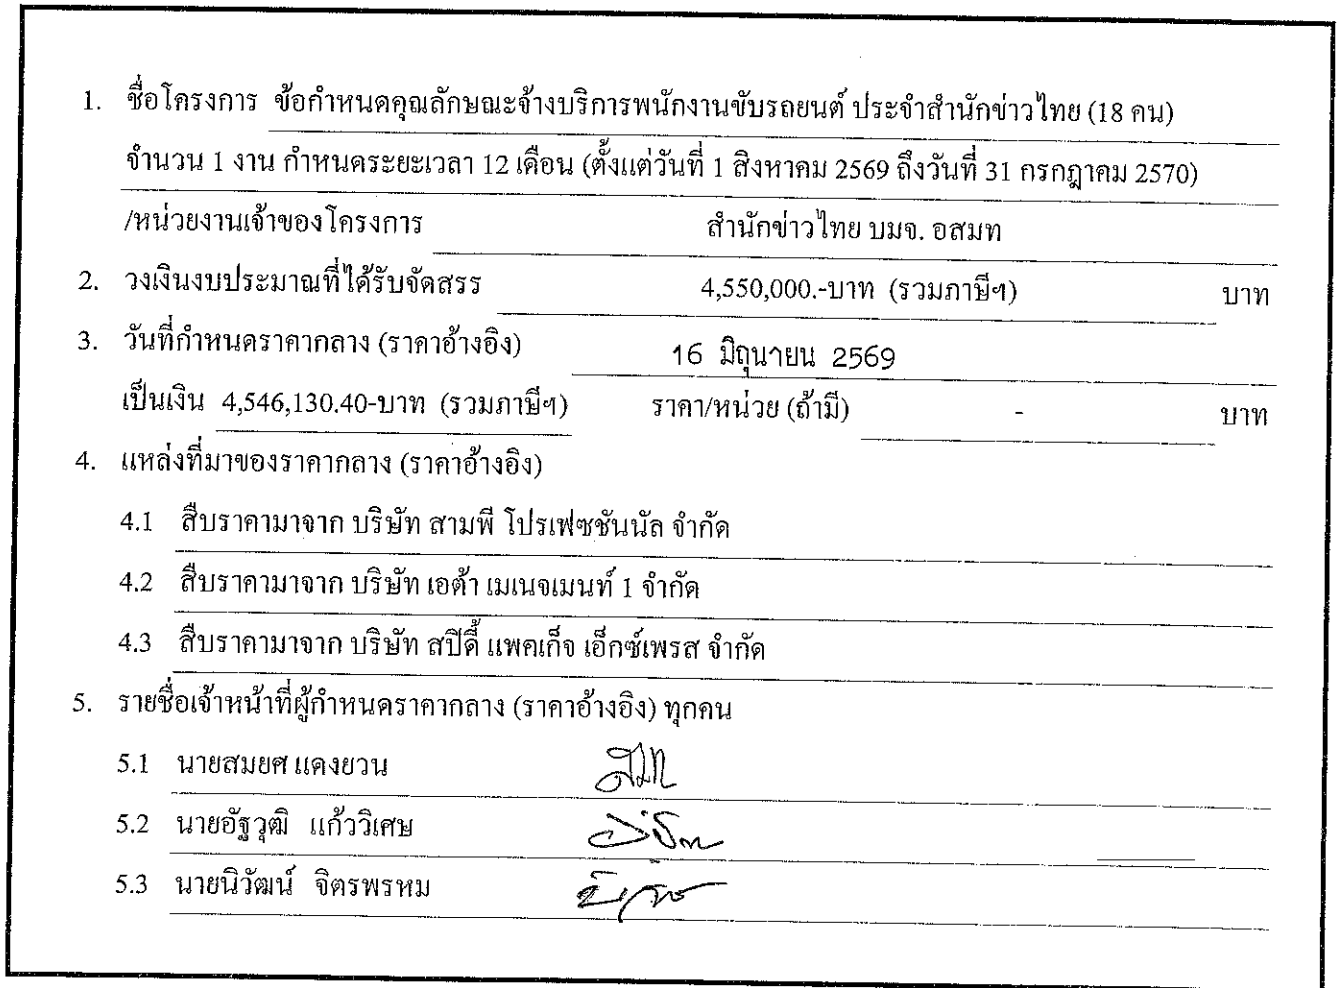 1. ชื่อโครงการ ข้อกำหนดคุณลักษณะจ้างบริการพนักงานขับรถยนต์ ประจำสำนักข่าวไทย (18 คน)
จำนวน 1 งาน กำหนดระยะเวลา 12 เดือน (ตั้งแต่วันที่ 1 สิงหาคม 2569 ถึงวันที่ 31 กรกฎาคม 2570)
/หน่วยงานเจ้าของโครงการ สำนักข่าวไทย บมจ. อสมท
2. วงเงินงบประมาณที่ได้รับจัดสรร 4,550,000.-บาท (รวมภาษีฯ) บาท
3. วันที่กำหนดราคากลาง (ราคาอ้างอิง) 16 มิถุนายน 2569
เป็นเงิน 4,546,130.40-บาท (รวมภาษีฯ) ราคา/หน่วย (ถ้ามี) - บาท
4. แหล่งที่มาของราคากลาง (ราคาอ้างอิง)
4.1 สืบราคามาจาก บริษัท สามพี โปรเฟซชันนัล จำกัด
4.2 สืบราคามาจาก บริษัท เอต้า เมเนจเมนท์ 1 จำกัด
4.3 สืบราคามาจาก บริษัท สปีดี้ แพคเก็จ เอ็กซ์เพรส จำกัด
5. รายชื่อเจ้าหน้าที่ผู้กำหนดราคากลาง (ราคาอ้างอิง) ทุกคน
5.1 นายสมยศ แคงยวน
5.2 นายอัฐวุฒิ แก้ววิเศษ
5.3 นายนิวัฒน์ จิตรพรหม